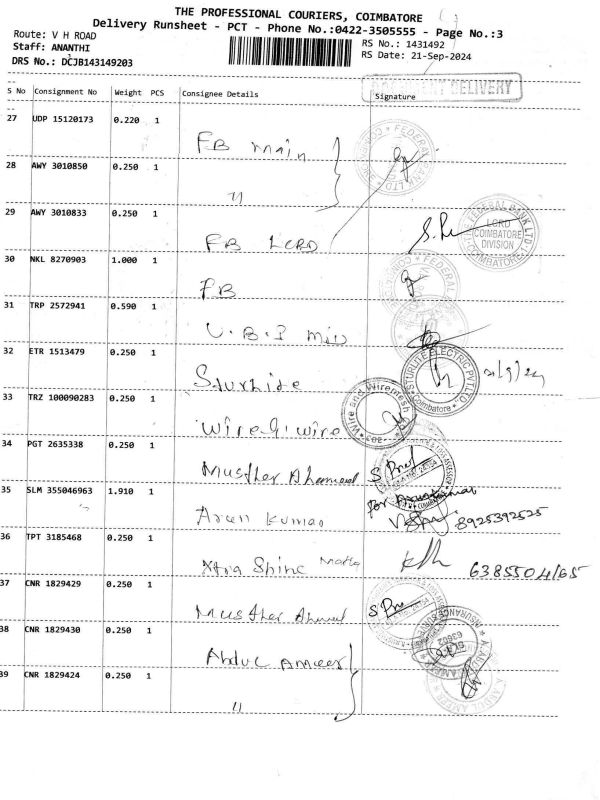 THE PROFESSIONAL COURIERS, COIMBATORE
Delivery Runsheet - PCT - Phone No.:0422-3505555 - Page No.:3
Route: V H ROAD
RS No.: 1431492
Staff: ANANTHI
RS Date: 21-Sep-2024
DRS No.: DCJB143149203
DELIVERY
S No Consignment No Weight PCS Consignee Details Signature
27 UDP 15120173 0.220 1
FB main
28 AWY 3010850 0.250 1
"
29 AWY 3010833 0.250 1
FB LCRD
S.
THE FEDERAL BANK LTD.
LCRD
COIMBATORE
DIVISION
COIMBATORE
30 NKL 8270903 1.000 1
FB
31 TRP 2572941 0.590 1
U.B.I
32 ETR 1513479 0.250 1
Sturlite
STURLITE ELECTRIC PVT.LTD.
Coimbatore
21/9/24
33 TRZ 100090283 0.250 1
Wire & wire
Wire and Wiremesh
34 PGT 2635338 0.250 1
Musther Ahamed
35 SLM 355046963 1.910 1
Arun Kumar
for Arunkumar
8925392525
36 TPT 3185468 0.250 1
Xtra Shine
6385504165
37 CNR 1829429 0.250 1
Musther Ahmed
38 CNR 1829430 0.250 1
Abdul Ameer
39 CNR 1829424 0.250 1
"